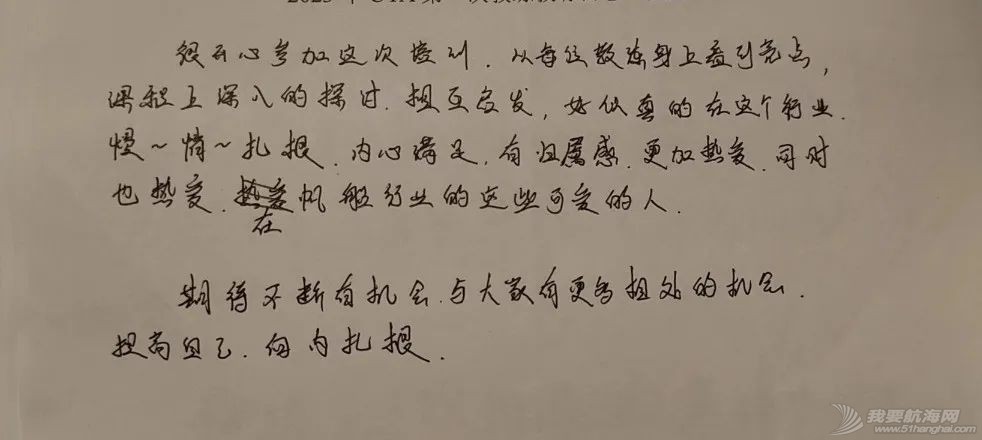 很开心参加这次培训.从每位教练身上看到亮点,
课程上深入的探讨.相互启发,好似真的在这个行业.
慢~悄~扎根.内心满足,有归属感.更加热爱.同时
也热爱.在帆船行业的这些可爱的人.
期待不断有机会.与大家有更多相处的机会.
提高自己.向内扎根.
我要航海网
www.51hanghai.com